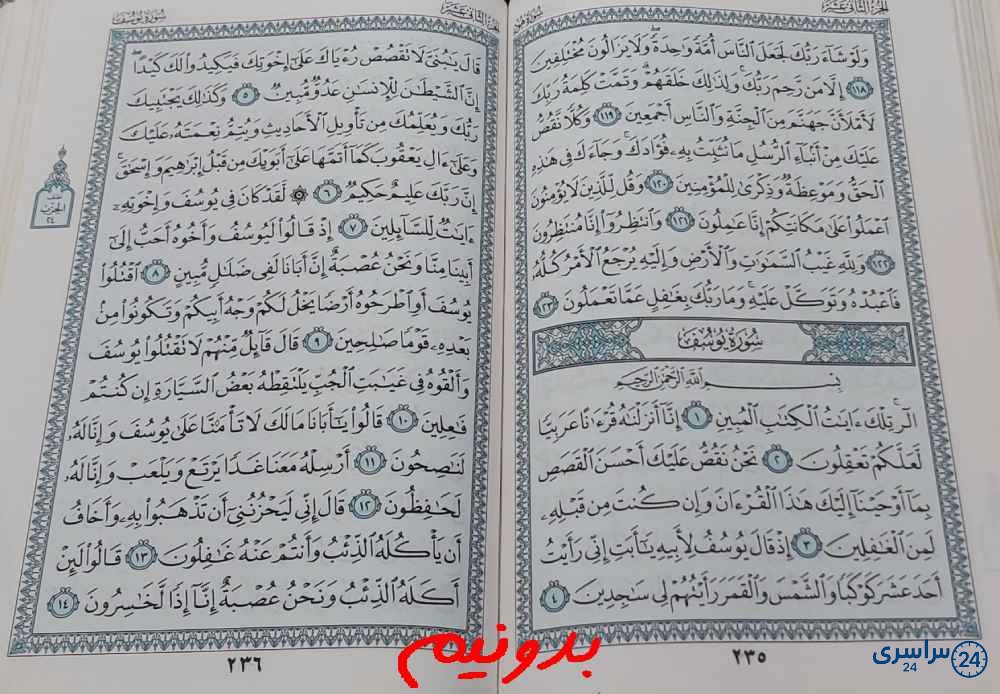 الجزء الثاني عشر
سورة هود
وَلَوْ شَآءَ رَبُّكَ لَجَعَلَ ٱلنَّاسَ أُمَّةً وَٰحِدَةً ۖ وَلَا يَزَالُونَ مُخْتَلِفِينَ
﴿١١٨﴾ إِلَّا مَن رَّحِمَ رَبُّكَ ۚ وَلِذَٰلِكَ خَلَقَهُمْ ۗ وَتَمَّتْ كَلِمَةُ رَبِّكَ
لَأَمْلَأَنَّ جَهَنَّمَ مِنَ ٱلْجِنَّةِ وَٱلنَّاسِ أَجْمَعِينَ ﴿١١٩﴾ وَكُلًّا نَّقُصُّ
عَلَيْكَ مِنْ أَنۢبَآءِ ٱلرُّسُلِ مَا نُثَبِّتُ بِهِۦ فُؤَادَكَ ۚ وَجَآءَكَ فِى هَٰذِهِ
ٱلْحَقُّ وَمَوْعِظَةٌ وَذِكْرَىٰ لِلْمُؤْمِنِينَ ﴿١٢٠﴾ وَقُل لِّلَّذِينَ لَا يُؤْمِنُونَ
ٱعْمَلُوا۟ عَلَىٰ مَكَانَتِكُمْ إِنَّا عَٰمِلُونَ ﴿١٢١﴾ وَٱنتَظِرُوٓا۟ إِنَّا مُنتَظِرُونَ
﴿١٢٢﴾ وَلِلَّهِ غَيْبُ ٱلسَّمَٰوَٰتِ وَٱلْأَرْضِ وَإِلَيْهِ يُرْجَعُ ٱلْأَمْرُ كُلُّهُۥ
فَٱعْبُدْهُ وَتَوَكَّلْ عَلَيْهِ ۚ وَمَا رَبُّكَ بِغَٰفِلٍ عَمَّا تَعْمَلُونَ ﴿١٢٣﴾
سُورَةُ يُوسُفَ
بِسْمِ ٱللَّهِ ٱلرَّحْمَٰنِ ٱلرَّحِيمِ
الٓر ۚ تِلْكَ ءَايَٰتُ ٱلْكِتَٰبِ ٱلْمُبِينِ ﴿١﴾ إِنَّآ أَنزَلْنَٰهُ قُرْءَٰنًا عَرَبِيًّا
لَّعَلَّكُمْ تَعْقِلُونَ ﴿٢﴾ نَحْنُ نَقُصُّ عَلَيْكَ أَحْسَنَ ٱلْقَصَصِ
بِمَآ أَوْحَيْنَآ إِلَيْكَ هَٰذَا ٱلْقُرْءَانَ وَإِن كُنتَ مِن قَبْلِهِۦ
لَمِنَ ٱلْغَٰفِلِينَ ﴿٣﴾ إِذْ قَالَ يُوسُفُ لِأَبِيهِ يَٰٓأَبَتِ إِنِّى رَأَيْتُ
أَحَدَ عَشَرَ كَوْكَبًا وَٱلشَّمْسَ وَٱلْقَمَرَ رَأَيْتُهُمْ لِى سَٰجِدِينَ ﴿٤﴾
٢٣٥
الجزء الثاني عشر
سورة يوسف
قَالَ يَٰبُنَىَّ لَا تَقْصُصْ رُءْيَاكَ عَلَىٰٓ إِخْوَتِكَ فَيَكِيدُوا۟ لَكَ كَيْدًا ۖ
إِنَّ ٱلشَّيْطَٰنَ لِلْإِنسَٰنِ عَدُوٌّ مُّبِينٌ ﴿٥﴾ وَكَذَٰلِكَ يَجْتَبِيكَ
رَبُّكَ وَيُعَلِّمُكَ مِن تَأْوِيلِ ٱلْأَحَادِيثِ وَيُتِمُّ نِعْمَتَهُۥ عَلَيْكَ
وَعَلَىٰٓ ءَالِ يَعْقُوبَ كَمَآ أَتَمَّهَا عَلَىٰٓ أَبَوَيْكَ مِن قَبْلُ إِبْرَٰهِيمَ وَإِسْحَٰقَ ۚ
إِنَّ رَبَّكَ عَلِيمٌ حَكِيمٌ ﴿٦﴾ ۞ لَّقَدْ كَانَ فِى يُوسُفَ وَإِخْوَتِهِۦٓ
ءَايَٰتٌ لِّلسَّآئِلِينَ ﴿٧﴾ إِذْ قَالُوا۟ لَيُوسُفُ وَأَخُوهُ أَحَبُّ إِلَىٰٓ
أَبِينَا مِنَّا وَنَحْنُ عُصْبَةٌ إِنَّ أَبَانَا لَفِى ضَلَٰلٍ مُّبِينٍ ﴿٨﴾ ٱقْتُلُوا۟
يُوسُفَ أَوِ ٱطْرَحُوهُ أَرْضًا يَخْلُ لَكُمْ وَجْهُ أَبِيكُمْ وَتَكُونُوا۟ مِنۢ
بَعْدِهِۦ قَوْمًا صَٰلِحِينَ ﴿٩﴾ قَالَ قَآئِلٌ مِّنْهُمْ لَا تَقْتُلُوا۟ يُوسُفَ
وَأَلْقُوهُ فِى غَيَٰبَتِ ٱلْجُبِّ يَلْتَقِطْهُ بَعْضُ ٱلسَّيَّارَةِ إِن كُنتُمْ
فَٰعِلِينَ ﴿١٠﴾ قَالُوا۟ يَٰٓأَبَانَا مَا لَكَ لَا تَأْمَ۫نَّا عَلَىٰ يُوسُفَ وَإِنَّا لَهُۥ
لَنَٰصِحُونَ ﴿١١﴾ أَرْسِلْهُ مَعَنَا غَدًا يَرْتَعْ وَيَلْعَبْ وَإِنَّا لَهُۥ
لَحَٰفِظُونَ ﴿١٢﴾ قَالَ إِنِّى لَيَحْزُنُنِىٓ أَن تَذْهَبُوا۟ بِهِۦ وَأَخَافُ
أَن يَأْكُلَهُ ٱلذِّئْبُ وَأَنتُمْ عَنْهُ غَٰفِلُونَ ﴿١٣﴾ قَالُوا۟ لَئِنْ
أَكَلَهُ ٱلذِّئْبُ وَنَحْنُ عُصْبَةٌ إِنَّآ إِذًا لَّخَٰسِرُونَ ﴿١٤﴾
نصف
الحزب
٢٤
٢٣٦
بدونیم
سراسری
24
24